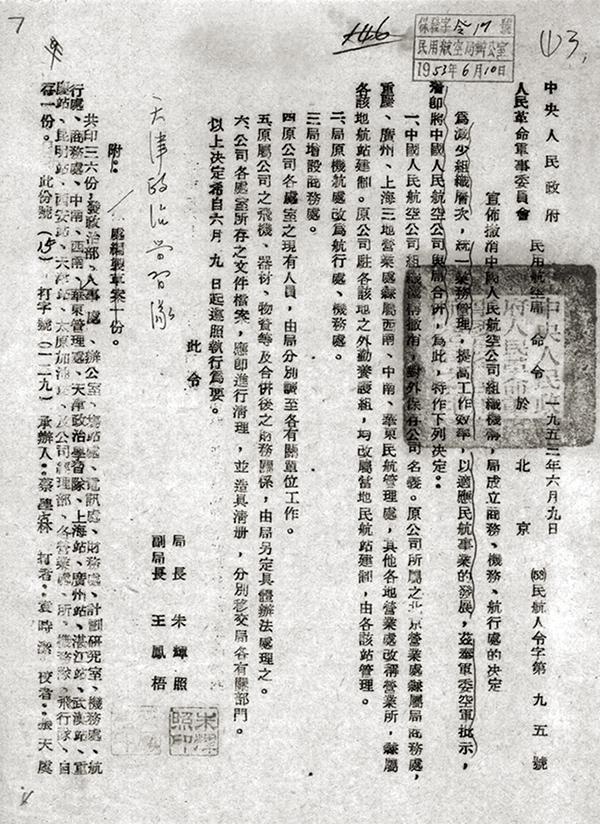 7
保發字令17號
民用航空局辦公室
1953年6月10日
113
中央人民政府
人民革命軍事委員會 民用航空局 命令 於 北京 一九五三年六月九日 (53)民航人令字第九五號
宣佈撤消中國人民航空公司組織機構,局成立商務、機務、航行處的決定
為減少組織層次,統一業務管理,提高工作效率,以適應民航事業的發展,茲奉軍委空軍批示,
着即將中國人民航空公司與局合併,為此,特作下列決定:
一、中國人民航空公司組織機構撤消,對外保存公司名義。原公司所屬之北京營業處隸屬局商務處,
重慶、廣州、上海三地營業處隸屬西南、中南、華東民航管理處,其他各地營業處改稱營業所,隸屬
各該地航站建制。原公司駐各該地之外勤養護組,均改屬當地民航站建制,由各該站管理。
二、局原機航處改為航行處、機務處。
三、局增設商務處。
四、原公司各處室之現有人員,由局分別調至各有關單位工作。
五、原屬公司之飛機、器材、物資等及合併後之財務關係,由局另定具體辦法處理之。
六、公司各處室所存之文件檔案,應即進行清理,並造具清冊,分別移交局各有關部門。
以上決定希自六月九日起遵照執行為要。
此令
局長 朱輝照
副局長 王鳳梧
朱輝照印
天津政治學習隊
附: 處編製草案一份。
共印三六份,發政治部、人事處、辦公室、場站處、電訊處、財務處、計劃研究室、機務處、航
行處、商務處、中南、西南、華東管理處、天津政治學習隊、上海站、廣州站、湛江站、武漢站、重
慶站、昆明站、西安站、天津站、太原加油站、及公司經理部、各營業處、所、機務隊、飛行隊、自
存一份。 此份號(15) 打字號(一二九) 承辦人:蔡 林 打者:袁時潔 校者:張天虞